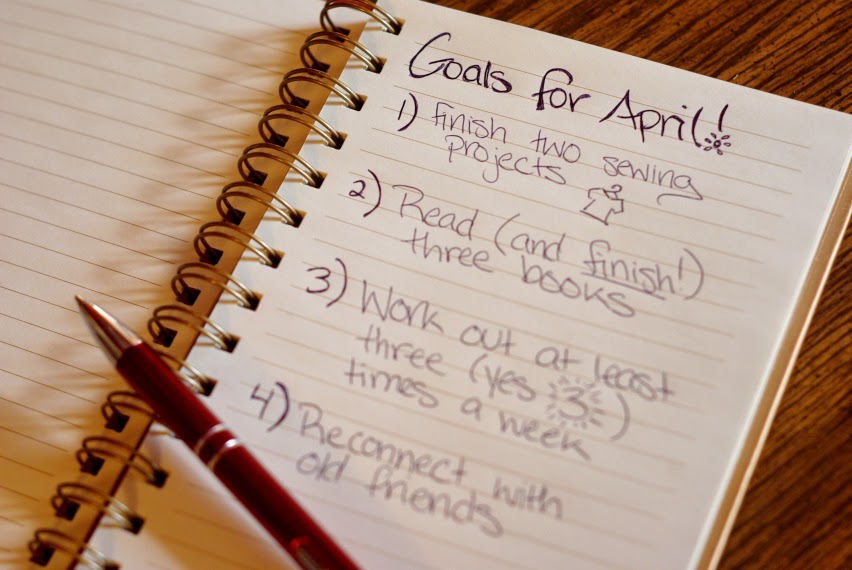 Goals for April!
1) finish two sewing
projects
2) Read (and finish!)
three books
3) Work out at least
three (yes 3)
times a week
4) Reconnect with
old friends